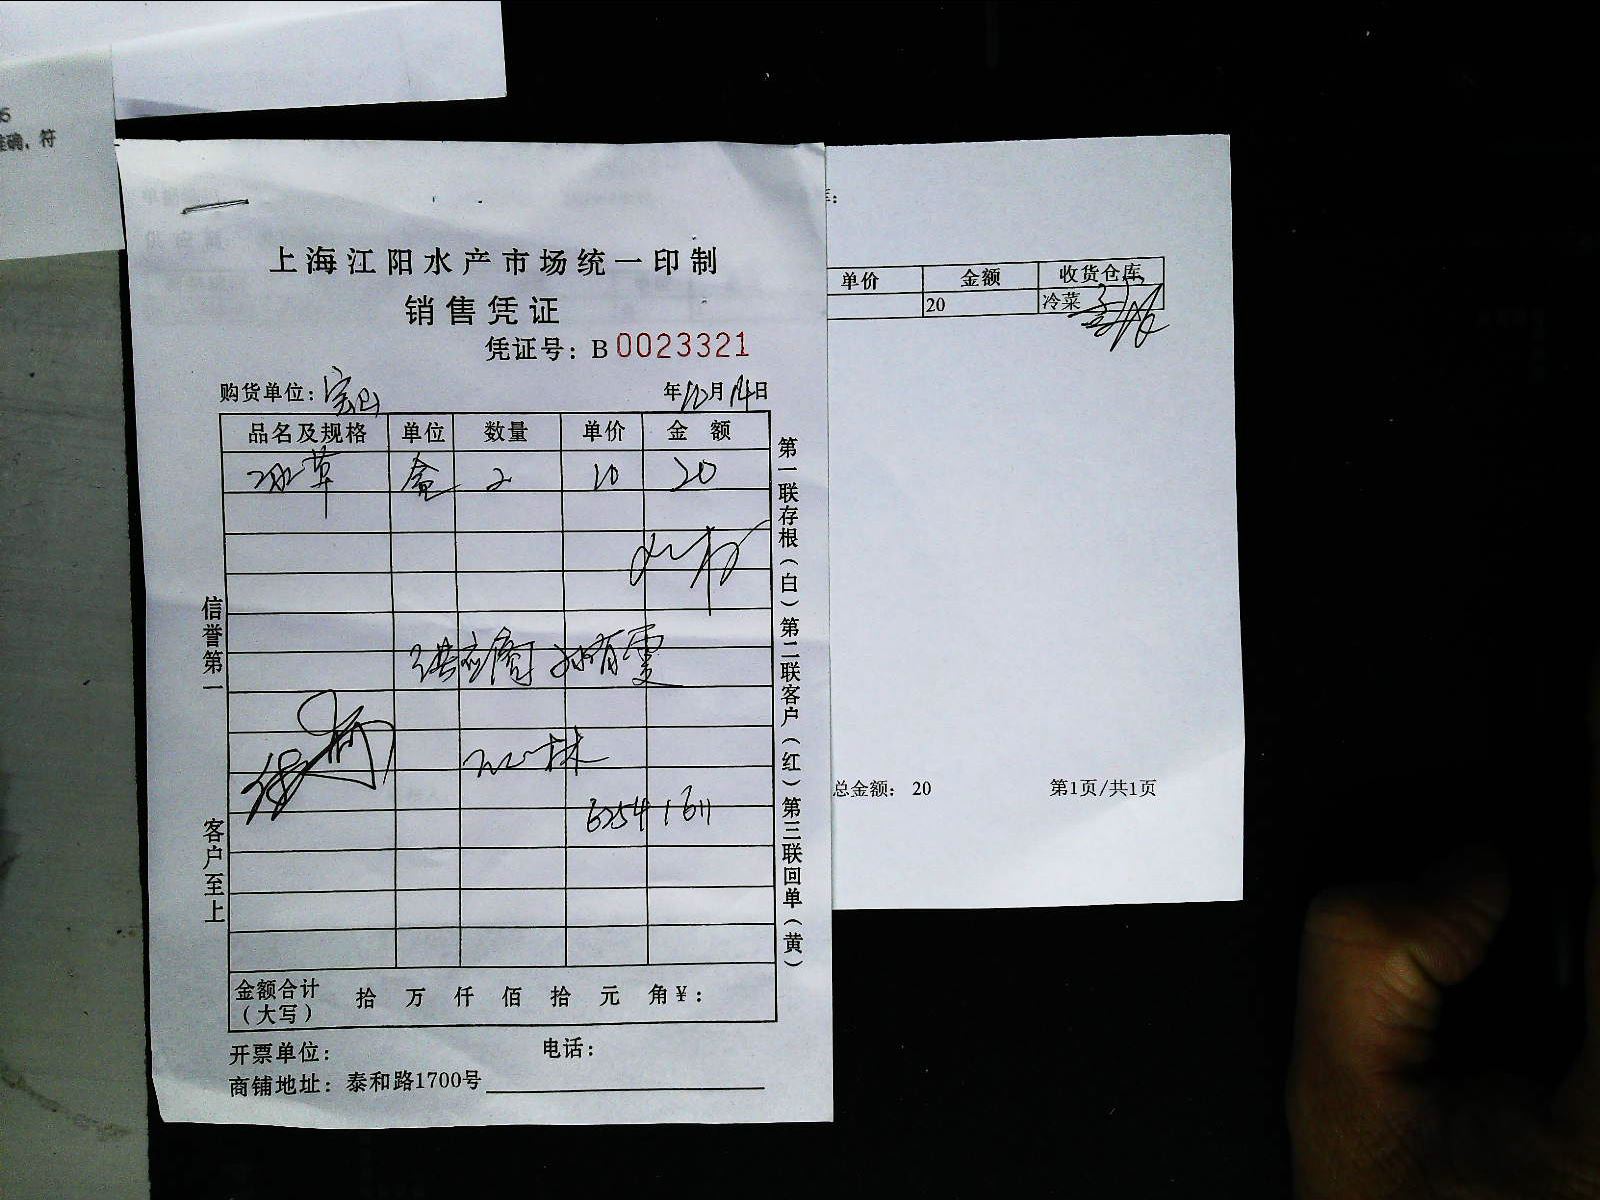 准确，符
上海江阳水产市场统一印制
销售凭证
凭证号：B 0023321
购货单位：宝山 年12月14日
品名及规格 单位 数量 单价 金 额
冰草 盒 2 10 20
供应商 孙有雯
62541611
信誉第一 客户至上
第一联存根（白）第二联客户（红）第三联回单（黄）
金额合计（大写） 拾 万 仟 佰 拾 元 角 ¥：
开票单位： 电话：
商铺地址：泰和路1700号
单价 金额 收货仓库
20 冷菜
总金额： 20 第1页/共1页